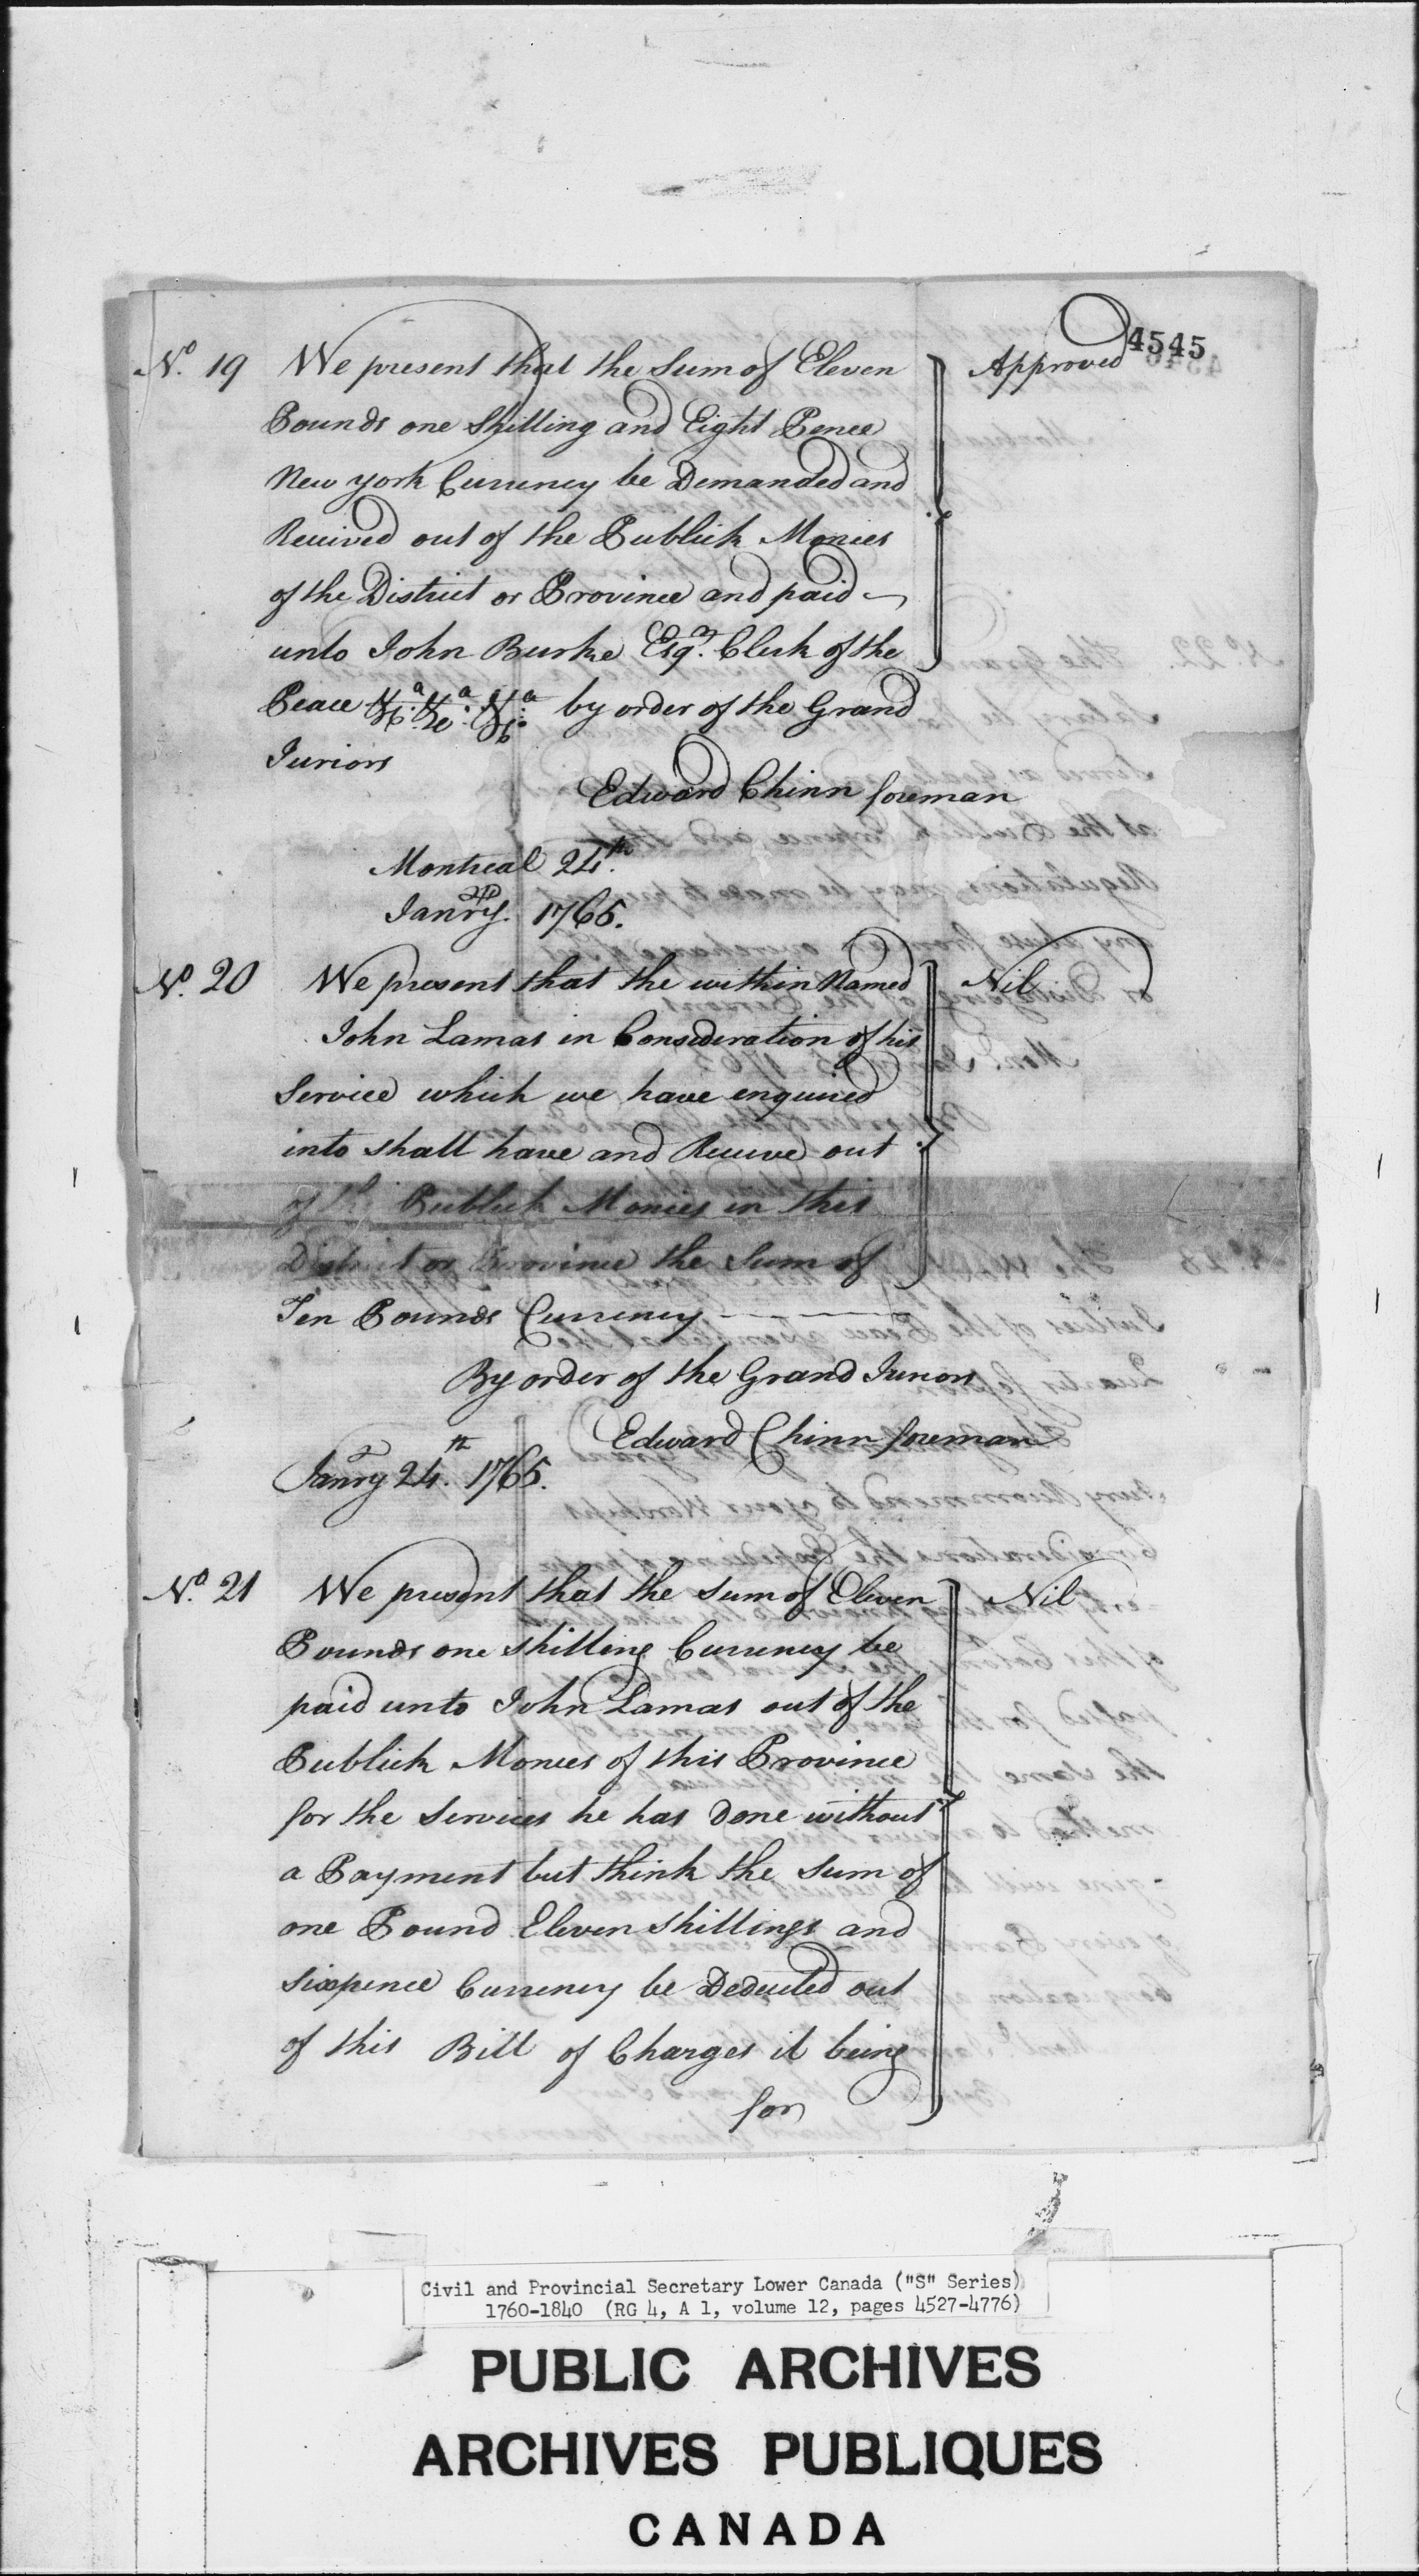 4545
No. 19 We present that the Sum of Eleven Approved
Pounds one Shilling and Eight Pence
New york Currency be Demanded and
Received out of the Publick Monies
of the District or Province and paid
unto John Burke Esqr. Clerk of the
Peace by order of the Grand
Juriors
Edward Chinn foreman
Montreal 24th
Janry. 1765.
No. 20 We present that the within Named Nil
John Lamas in Consideration of his
Service which we have enquired
into shall have and Receive out
of the Publick Monies in this
District or Province the Sum of
Ten Pounds Currency
By order of the Grand Juriors
Edward Chinn foreman
Janry 24th. 1765.
No. 21 We present that the Sum of Eleven Nil
Pounds one shilling Currency be
paid unto John Lamas out of the
Publick Monies of this Province
for the Services he has Done without
a Payment but think the Sum of
one Pound Eleven shillings and
sixpence Currency be Deducted out
of this Bill of Charges it being
for
Civil and Provincial Secretary Lower Canada ("S" Series)
1760-1840 (RG 4, A 1, volume 12, pages 4527-4776)
PUBLIC ARCHIVES
ARCHIVES PUBLIQUES
CANADA